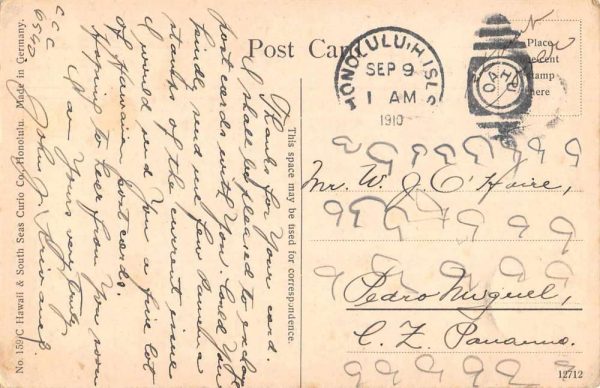 Post Card
HONOLULU, H. ISLS.
SEP 9
1 AM
1910
OAHU
Place
cent
stamp
here
This space may be used for correspondence.
Thanks for Your card.
I shall be pleased to exchange
post cards with You. Could You
kindly send me few
stamps of the current issue
I would send You a fine lot
of Hawaiian post cards.
Hoping to hear from You soon
I am Yours very truly
John J.
C C C
6540
Mr. W. J. O'Haire,
Pedro Miguel,
C. Z. Panama.
No. 159 C Hawaii & South Seas Curio Co., Honolulu. Made in Germany.
12712